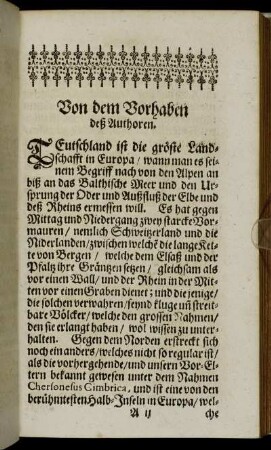 Von dem Vorhaben
deß Authoren.
TEutschland ist die gröste Land-
schafft in Europa / wann man es sei-
nem Begriff nach von den Alpen an
biß an das Balthische Meer und den Ur-
sprung der Oder und Außfluß der Elbe und
deß Rheins ermessen will. Es hat gegen
Mittag und Nidergang zwey starcke Vor-
mauren / nemlich Schweitzerland und die
Niderlanden / zwischen welchē die lange Ket-
te von Bergen / welche dem Elsaß und der
Pfaltz ihre Gräntzen setzen / gleichsam als
vor einen Wall / und der Rhein in der Mit-
ten vor einen Graben dienet; und die jenige /
die solchen verwahren / seynd kluge uñ streit-
bare Völcker / welche den grossen Nahmen /
den sie erlangt haben / wol wissen zu unter-
halten. Gegen dem Norden erstreckt sich
noch ein anders / welches nicht so regular ist /
als die vorhergehende / und unsern Vor-El-
tern bekannt gewesen unter dem Nahmen
Chersonesus Cimbrica, und ist eine von den
berühmtesten Halb-Inseln in Europa / wel-
A ij che